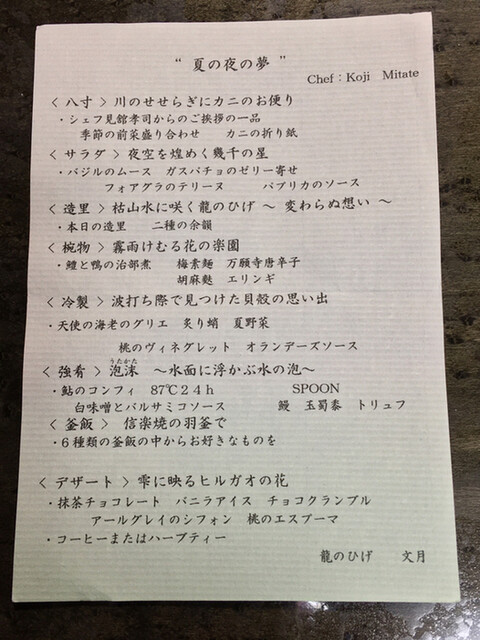 “ 夏の夜の夢 ”
Chef：Koji Mitate
＜ 八寸 ＞ 川のせせらぎにカニのお便り
・シェフ見舘孝司からのご挨拶の一品
季節の前菜盛り合わせ カニの折り紙
＜ サラダ ＞ 夜空を煌めく幾千の星
・バジルのムース ガスパチョのゼリー寄せ
フォアグラのテリーヌ パプリカのソース
＜ 造里 ＞ 枯山水に咲く龍のひげ ～ 変わらぬ想い ～
・本日の造里 二種の余韻
＜ 椀物 ＞ 霧雨けむる花の楽園
・鱧と鴨の治部煮 梅素麺 万願寺唐辛子
胡麻麩 エリンギ
＜ 冷製 ＞ 波打ち際で見つけた貝殻の思い出
・天使の海老のグリエ 炙り蛸 夏野菜
桃のヴィネグレット オランデーズソース
＜ 強肴 ＞ 泡沫 ～水面に浮かぶ水の泡～
うたかた
・鮎のコンフィ 87℃24h SPOON
白味噌とバルサミコソース 鰻 玉蜀黍 トリュフ
＜ 釜飯 ＞ 信楽焼の羽釜で
・6種類の釜飯の中からお好きなものを
＜ デザート ＞ 雫に映るヒルガオの花
・抹茶チョコレート バニラアイス チョコクランブル
アールグレイのシフォン 桃のエスプーマ
・コーヒーまたはハーブティー
龍のひげ 文月